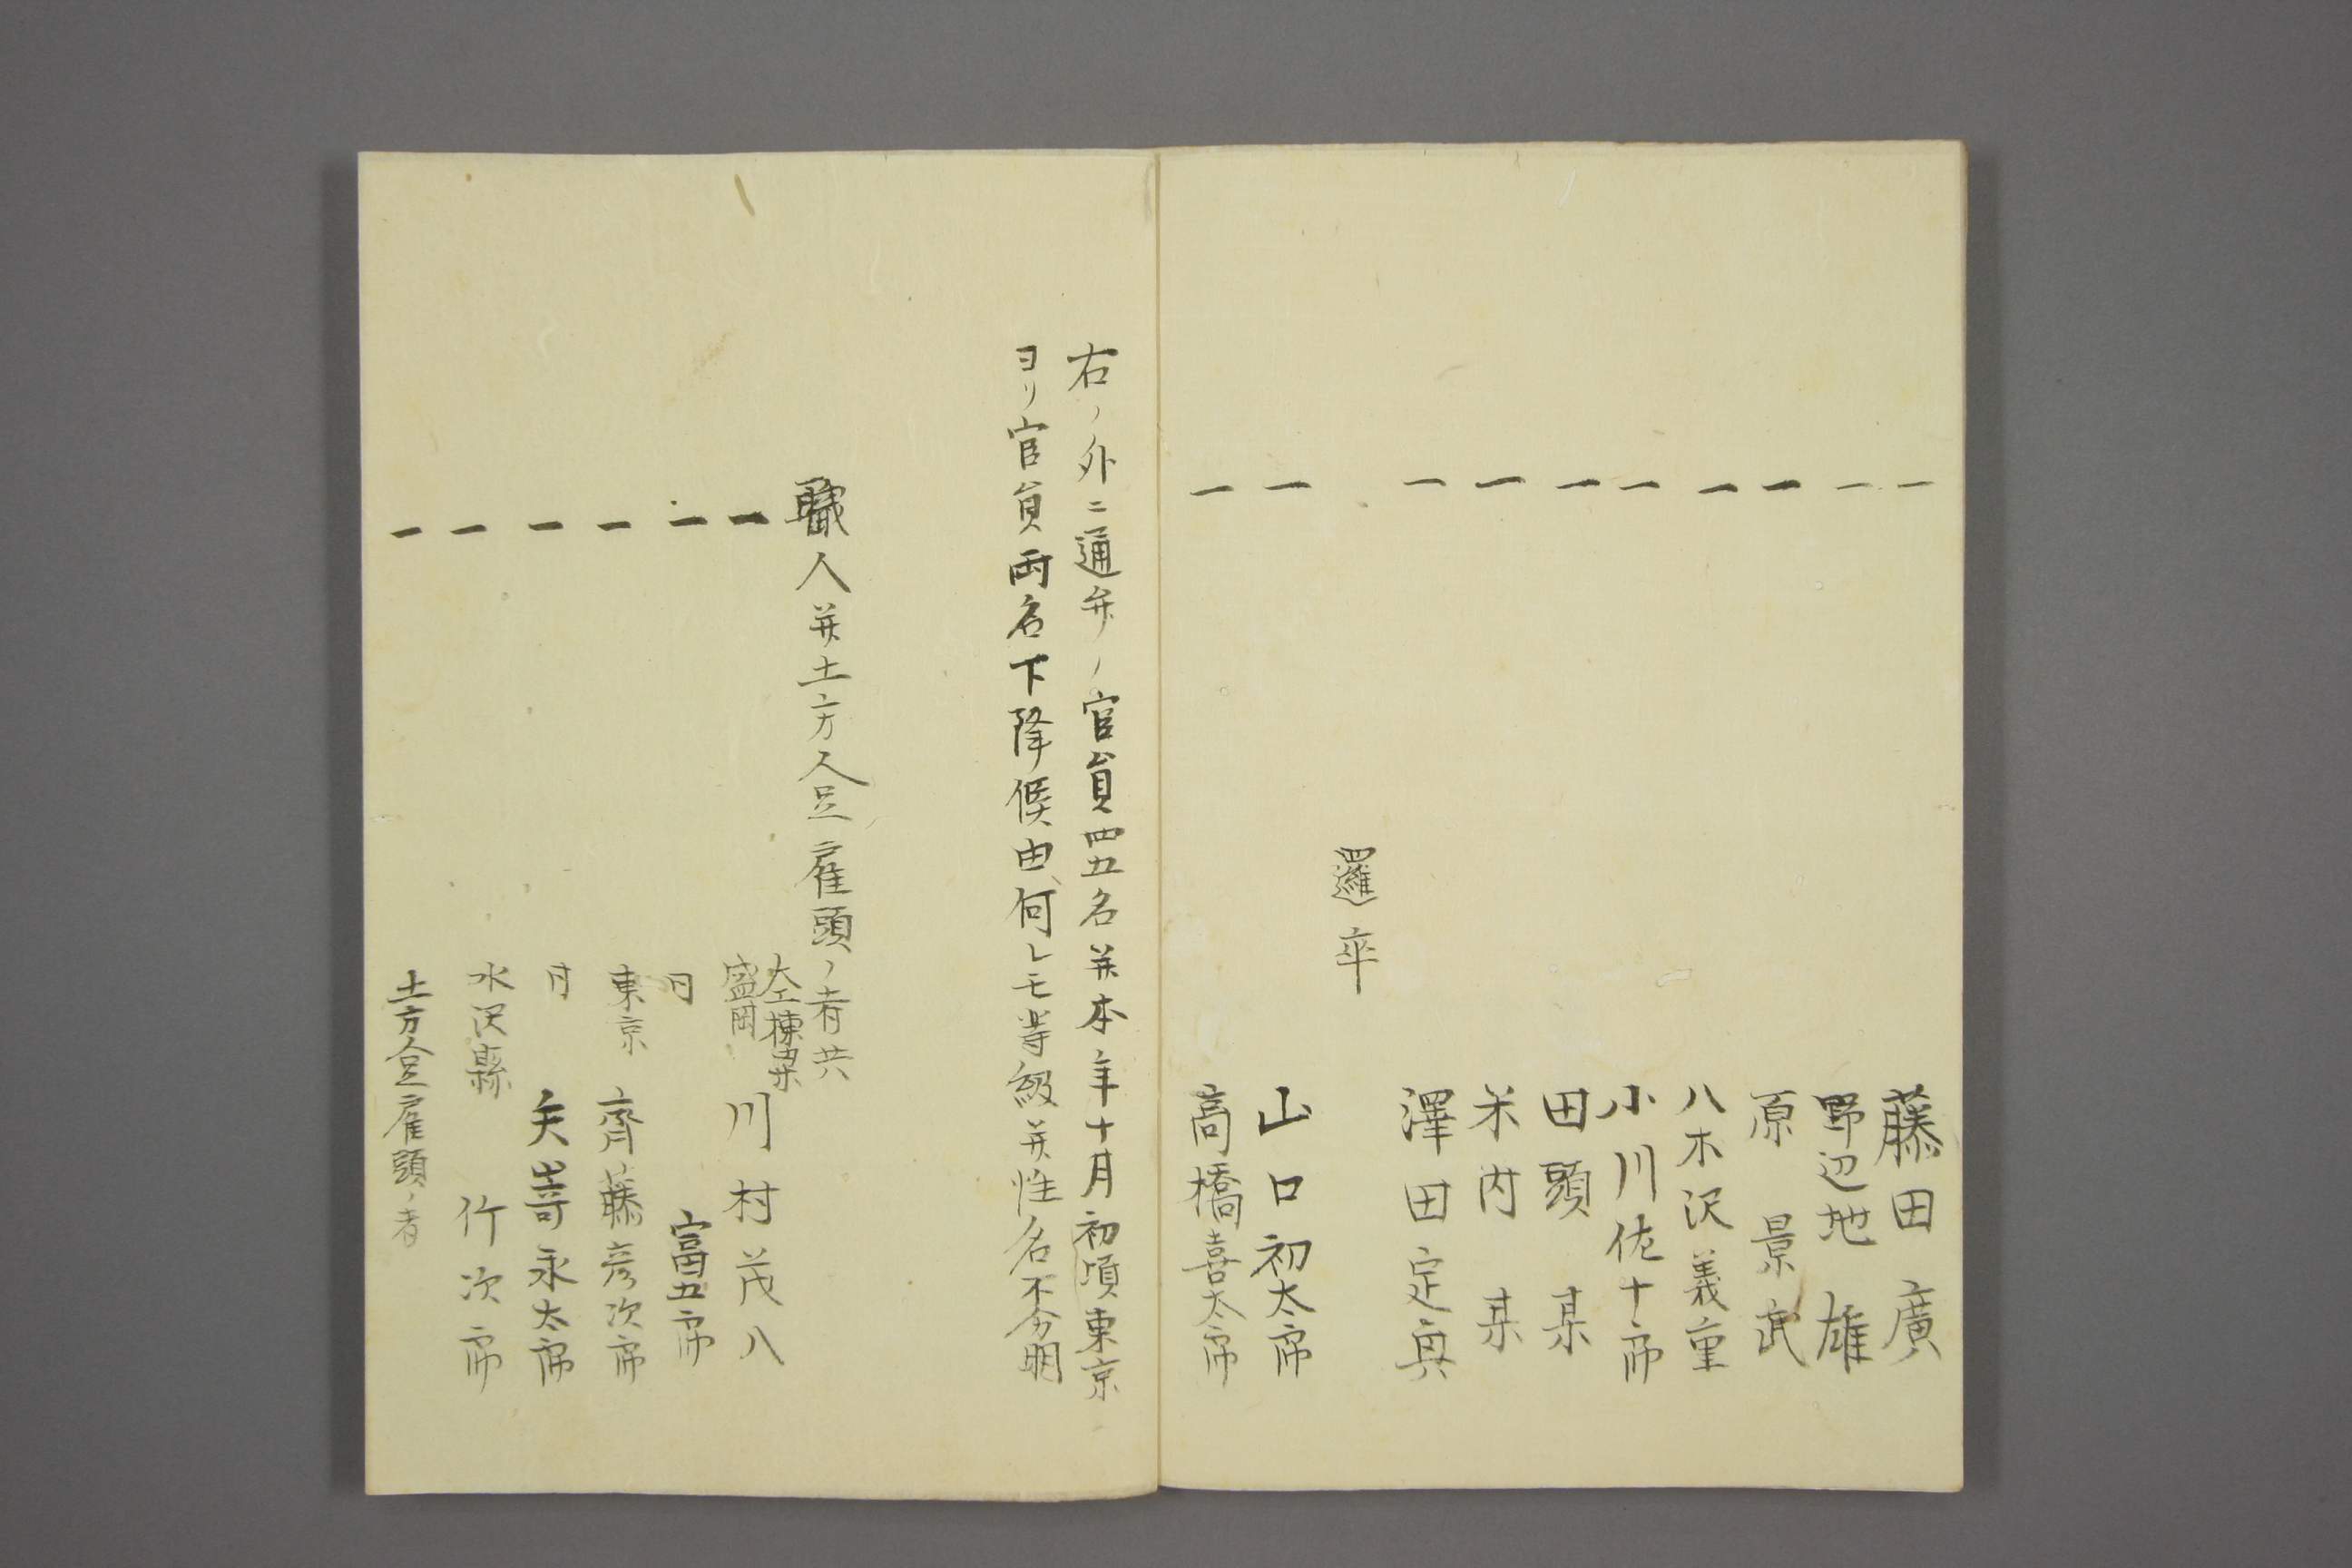 一 藤田廣
一 野辺地雄
一 原景武
一 八木沢義重
一 小川佐十郎
一 田頭某
一 米内某
一 澤田定興
邏卒
一 山口初太郎
一 高橋喜太郎
右ノ外ニ通弁ノ官員四五名并本年十月初頃東京
ヨリ官員両名下降候由何レモ等級并性名不分明
職人并土方人足雇頭ノ者共
大工棟梁
一 盛岡 川村茂八
一 同 富五郎
一 東京 齊藤彦次郎
一 同 矢嵜永太郎
一 水沢縣 竹次郎
一 土方人足雇頭ノ者